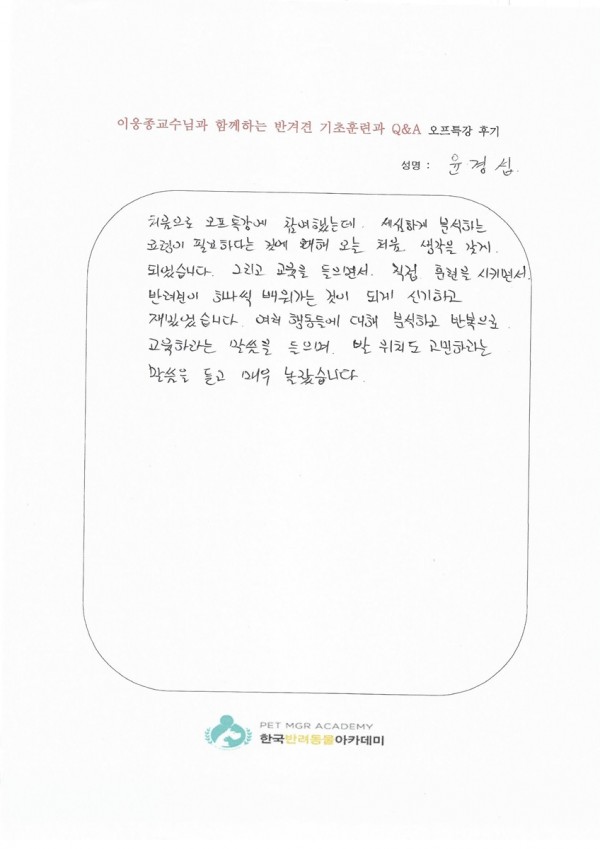 이웅종교수님과 함께하는 반겨견 기초훈련과 Q&A 오프특강 후기
성명 : 윤경섭.
처음으로 오프특강에 참여했는데. 세심하게 분석하는
요령이 필요하다는 것에 대해 오늘 처음 생각을 갖게.
되었습니다. 그리고 교육을 들으면서. 직접 훈련을 시키면서.
반려견이 하나씩 배워가는 것이 되게 신기하고
재밌었습니다. 여러 행동들에 대해 분석하고 반복으로.
교육하라는 말씀을 들으며. 발 위치도 고민하라는
말씀을 듣고 매우 놀랐습니다.
PET MGR ACADEMY
한국반려동물아카데미